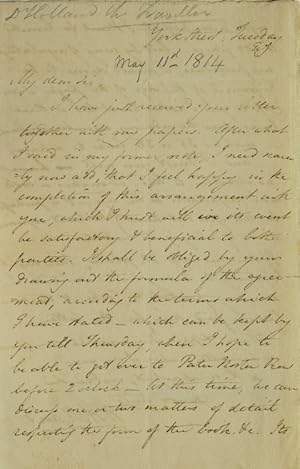 Dr Holland the Traveller
York Street, Tuesday
May 11d 1814
My dear sir
I have just received your letter
together with my papers. After what
I said in my former note, I need scarce
-ly now add, that I feel happy in the
completion of this arrangement with
you, which I trust will in its event
be satisfactory & beneficial to both
parties. I shall be obliged by your
drawing out the formula of the agree-
ment, according to the terms which
I have stated - which can be kept by
you till Thursday, when I hope to
be able to get over to Pater Noster Row
before 2 o'clock - at this time, we can
discuss one or two matters of detail
respecting the form of the book &c. Its